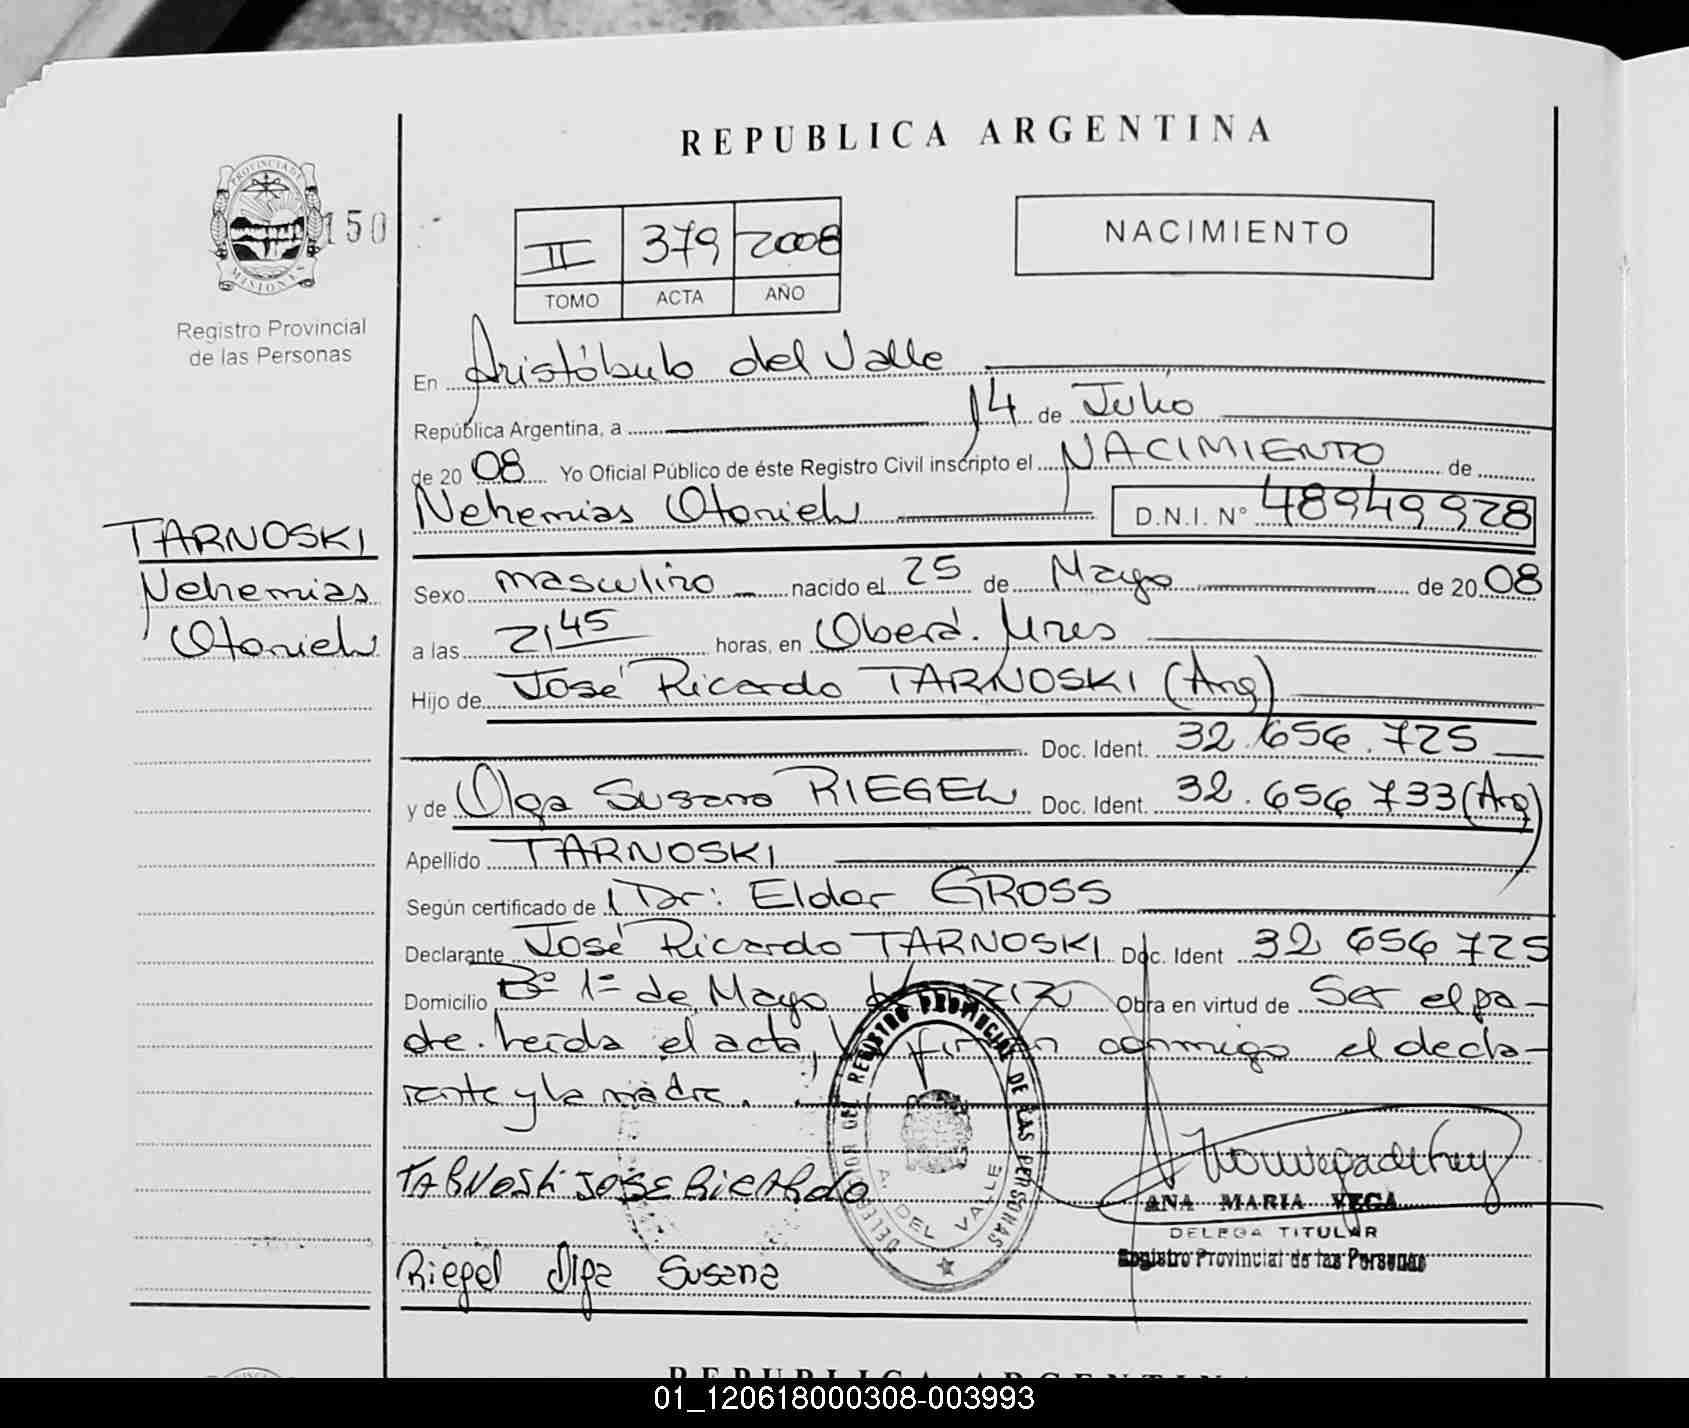 REPUBLICA ARGENTINA
PROVINCIA DE
MISIONES
150
Registro Provincial
de las Personas
II 379 2008
TOMO ACTA AÑO
NACIMIENTO
En Aristóbulo del Valle
República Argentina, a 14 de Julio
de 2008 Yo Oficial Público de éste Registro Civil inscripto el NACIMIENTO de
Nehemias Otoniel D.N.I. N° 48949928
TARNOSKI
Nehemias
Otoniel
Sexo masculino nacido el 25 de Mayo de 2008
a las 21 45 horas, en Oberá. Mnes
Hijo de José Ricardo TARNOSKI (Arg)
Doc. Ident. 32.656.725
y de Olga Susana RIEGEL Doc. Ident. 32.656 733 (Arg)
Apellido TARNOSKI
Según certificado de Dr: Eldor GROSS
Declarante José Ricardo TARNOSKI Doc. Ident 32 656 725
Domicilio B° 1° de Mayo Obra en virtud de Ser el pa-
dre. Leída el acta, firman conmigo el decla-
rante y la madre.
DELEGACION DEL REGISTRO PROVINCIAL DE LAS PERSONAS
A. DEL VALLE
TARNOSKi JOSE RiCARdo
ANA MARIA VEGA
DELEGA TITULAR
Registro Provincial de las Personas
Riegel Olga Susana
REPUBLICA ARGENTINA
01_120618000308-003993